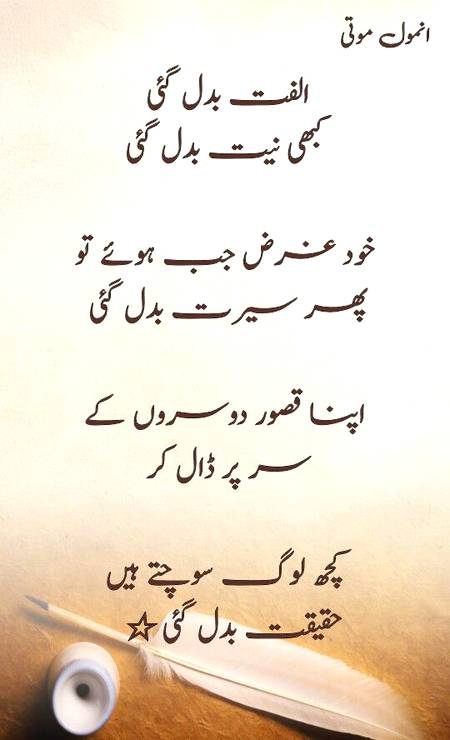 انمول موتی
الفت بدل گئی
کبھی نیت بدل گئی
خود غرض جب ہوئے تو
پھر سیرت بدل گئی
اپنا قصور دوسروں کے
سر پر ڈال کر
کچھ لوگ سوچتے ہیں
حقیقت بدل گئی ☆